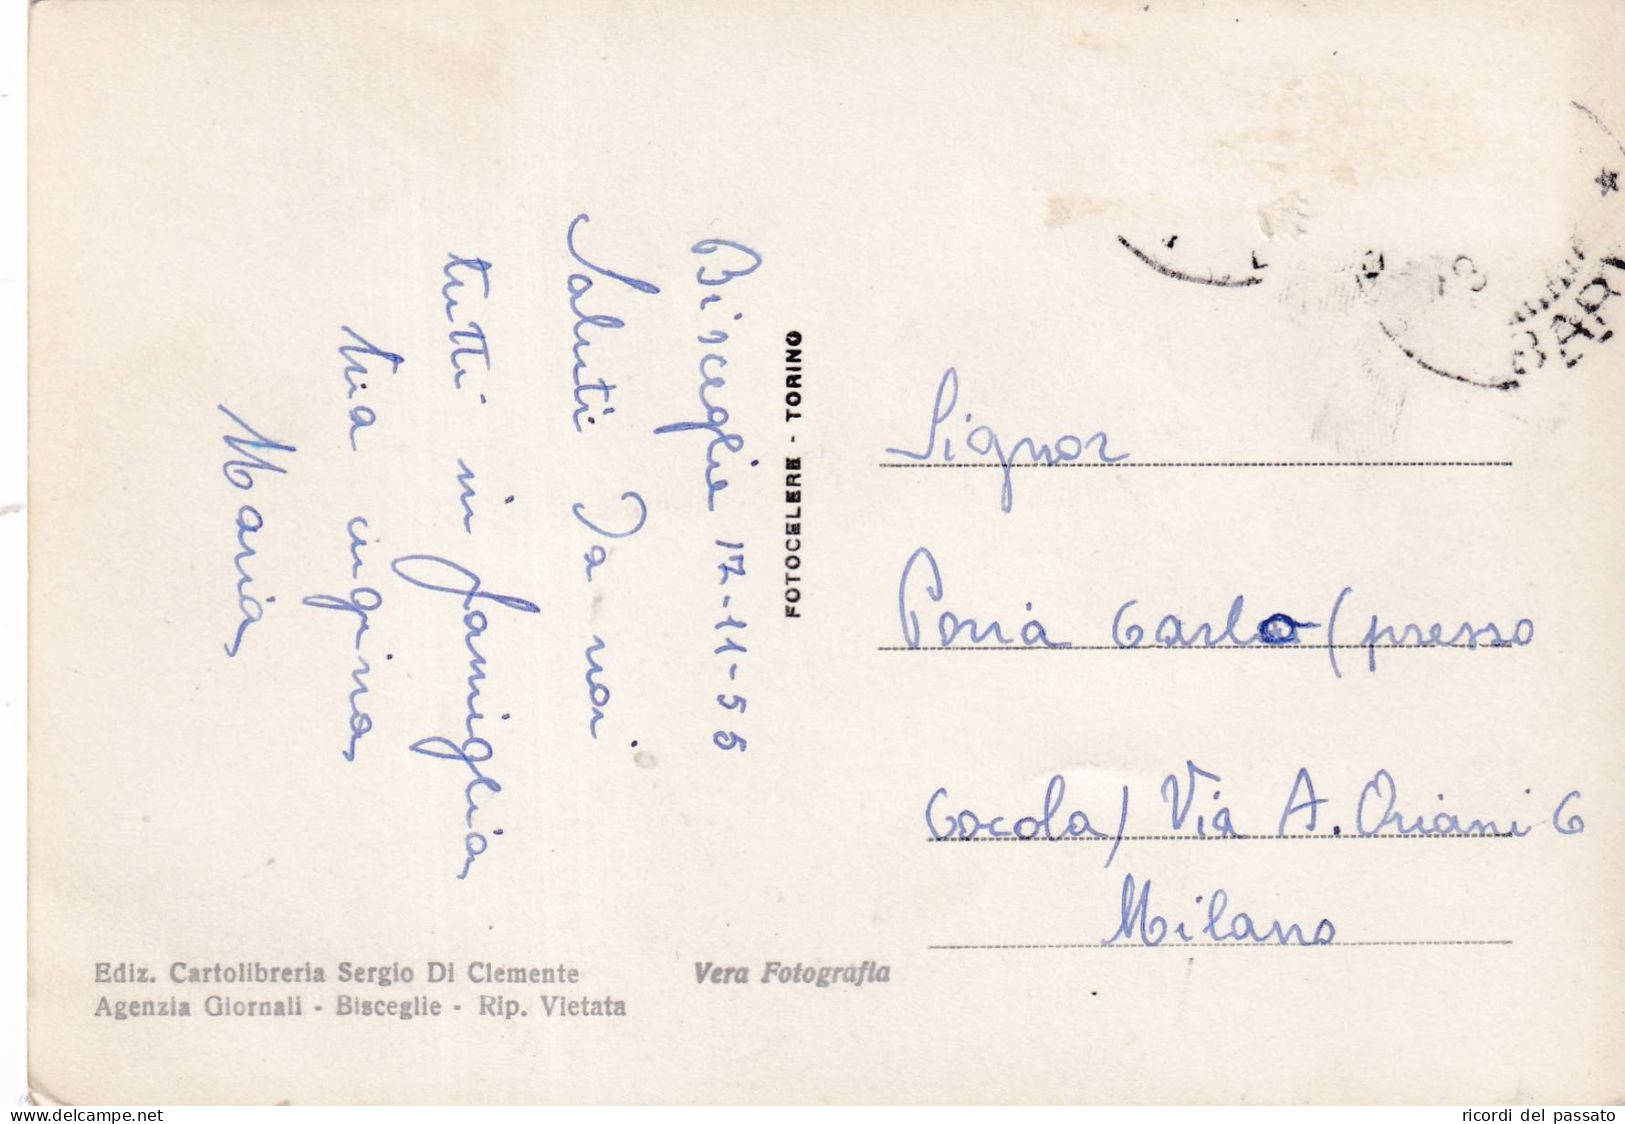 Bisceglie 17-11-55
Saluti da noi
tutti in famiglia
tua cugina
Maria
FOTOCELERE - TORINO
BARI
Signor
Poria Carlo (presso
Cocola) Via A. Oriani 6
Milano
Ediz. Cartolibreria Sergio Di Clemente
Agenzia Giornali - Bisceglie - Rip. Vietata
Vera Fotografia
ricordi del passato
delcampe.net